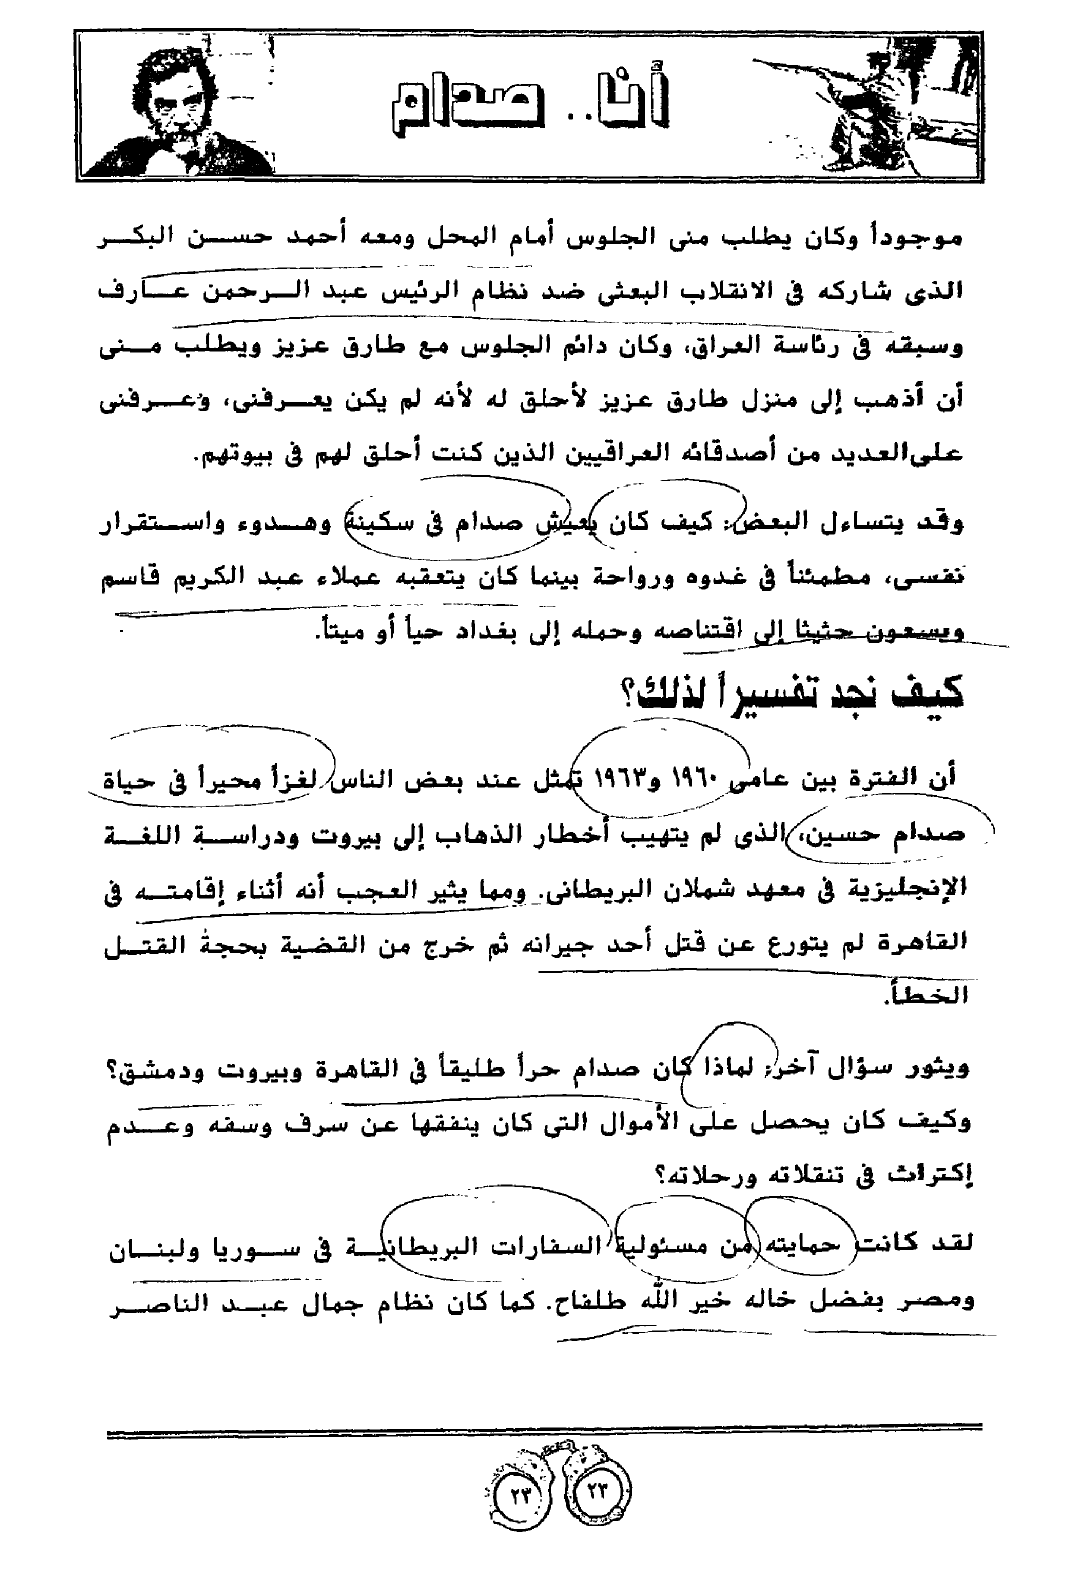 أنا.. صدام
موجوداً وكان يطلب منى الجلوس أمام المحل ومعه أحمد حسن البكر
الذى شاركه فى الانقلاب البعثى ضد نظام الرئيس عبد الرحمن عارف
وسبقه فى رئاسة العراق، وكان دائم الجلوس مع طارق عزيز ويطلب منى
أن أذهب إلى منزل طارق عزيز لأحلق له لأنه لم يكن يعرفنى، وعرفنى
على العديد من أصدقائه العراقيين الذين كنت أحلق لهم فى بيوتهم.
وقد يتساءل البعض: كيف كان يعيش صدام فى سكينة وهدوء واستقرار
نفسى، مطمئناً فى غدوه ورواحة بينما كان يتعقبه عملاء عبد الكريم قاسم
ويسعون حثيثا إلى اقتناصه وحمله إلى بغداد حياً أو ميتاً.
كيف نجد تفسيراً لذلك؟
أن الفترة بين عامى ١٩٦٠ و١٩٦٣ تمثل عند بعض الناس لغزاً محيراً فى حياة
صدام حسين، الذى لم يتهيب أخطار الذهاب إلى بيروت ودراسة اللغة
الإنجليزية فى معهد شملان البريطانى. ومما يثير العجب أنه أثناء إقامته فى
القاهرة لم يتورع عن قتل أحد جيرانه ثم خرج من القضية بحجة القتل
الخطأ.
ويثور سؤال آخر: لماذا كان صدام حراً طليقاً فى القاهرة وبيروت ودمشق؟
وكيف كان يحصل على الأموال التى كان ينفقها عن سرف وسفه وعدم
إكتراث فى تنقلاته ورحلاته؟
لقد كانت حمايته من مسئولية السفارات البريطانية فى سوريا ولبنان
ومصر بفضل خاله خير الله طلفاح. كما كان نظام جمال عبد الناصر
٢٣ ٢٣